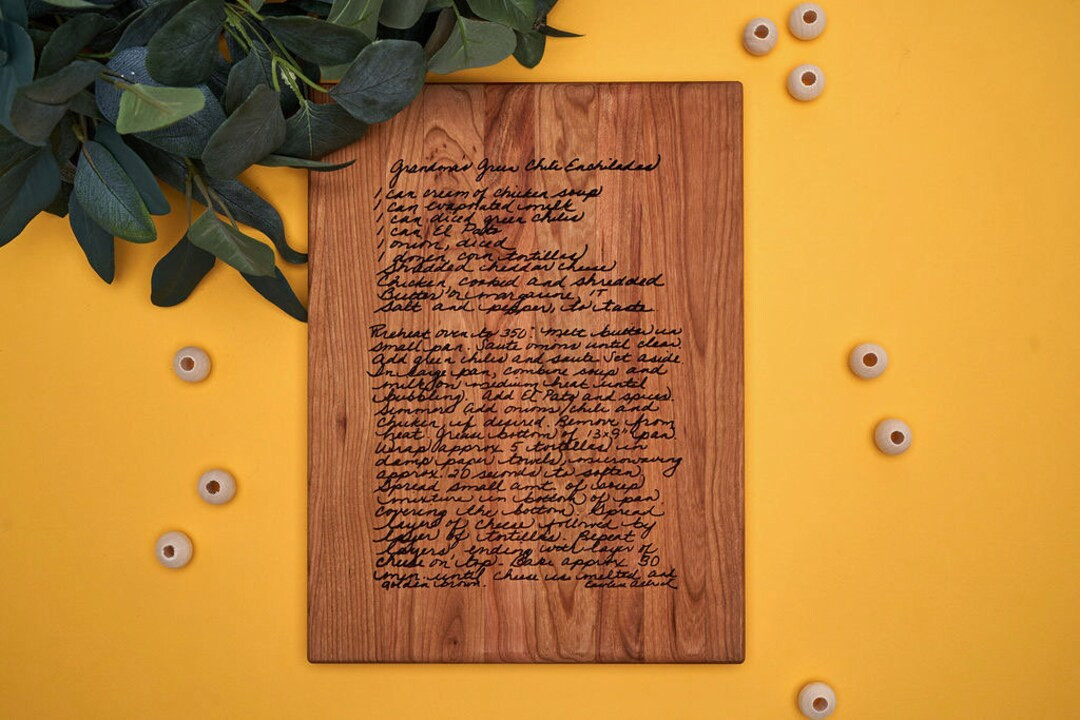 Grandma's Green Chili Enchiladas
1 can cream of chicken soup
1 can evaporated milk
1 can diced green chilis
1 can El Pato
1 onion, diced
1 dozen, corn tortillas
Shredded cheddar cheese
Chicken, cooked and shredded
Butter or margarine, 1T
Salt and pepper, to taste
Preheat oven to 350°. Melt butter in
small pan. Saute onions until clear.
Add green chilis and saute. Set aside
In large pan, combine soup and
milk on medium heat until
bubbling. Add El Pato and spices.
Simmer. Add onions/chili and
chicken, if desired. Remove from
heat. Grease bottom of 13x9" pan.
Wrap approx 5 tortillas in
damp paper towels, microwaving
approx. 20 seconds to soften.
Spread small amt. of soup
mixture in bottom of pan
covering the bottom. Spread
layer of cheese followed by
layer of tortillas. Repeat
layers ending with layer of
cheese on top. Bake approx 30
min. until cheese is melted and
golden brown.